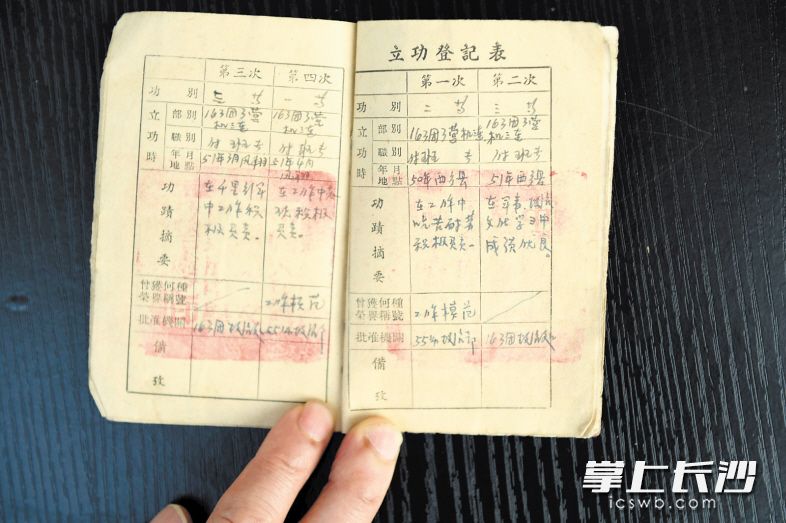 立功登記表
第一次 第二次
功別 二等 三等
立功時
部別 163团3营机三连 163团3营机三连
職別 付班长 付班长
年月地點 50年西乡县 51年西乡县
功蹟摘要
在工作中吃苦耐劳积极负责。
文化学习中成绩优良。
付獲何種榮譽稱號 工作模范
批准機關 55师政治部 163团政治处
備攷
第三次 第四次
功別 三等 一等
立功時
部別 163团3营机三连 163团3营机三连
職別 付班长 付班长
年月地點 51年3月凤翔 51年4月
功蹟摘要
在千里行军中工作积极负责。
在工作中表现积极负责。
付獲何種榮譽稱號 工作模范
批准機關 163团政治处 55师政治部
備攷
掌上长沙
icswb.com